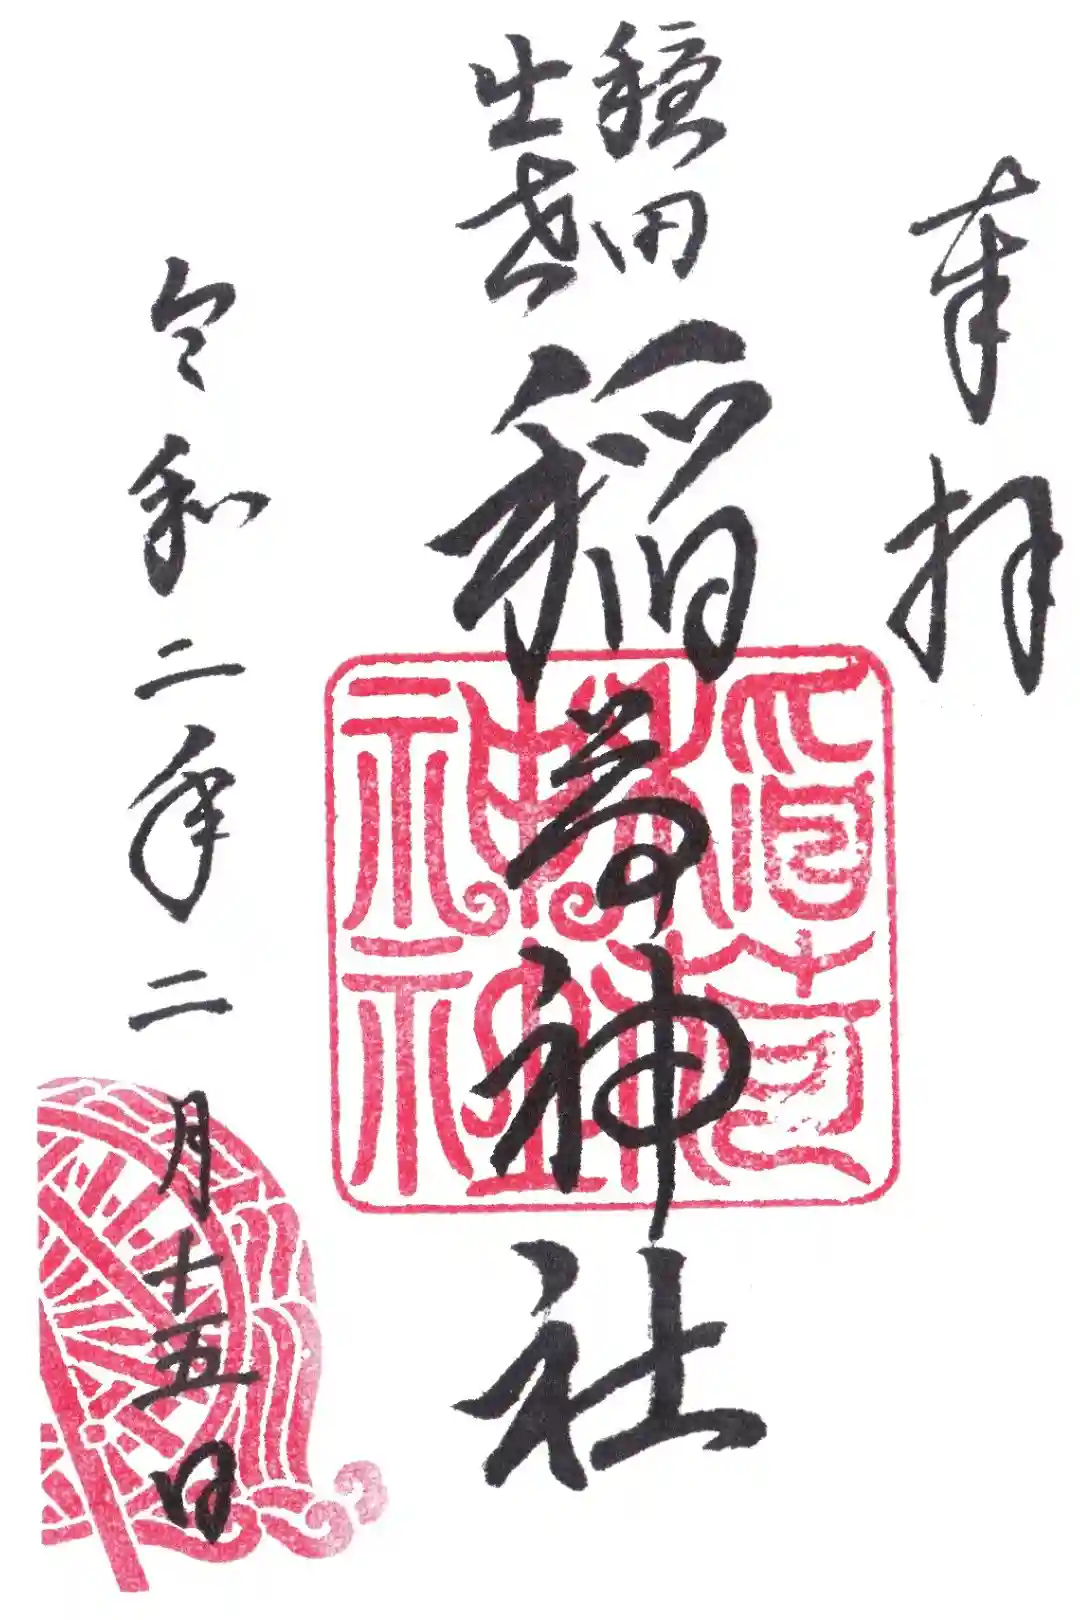 奉拝
穏田
出世
稲荷神社
稲荷
神社
令和二年二月十五日